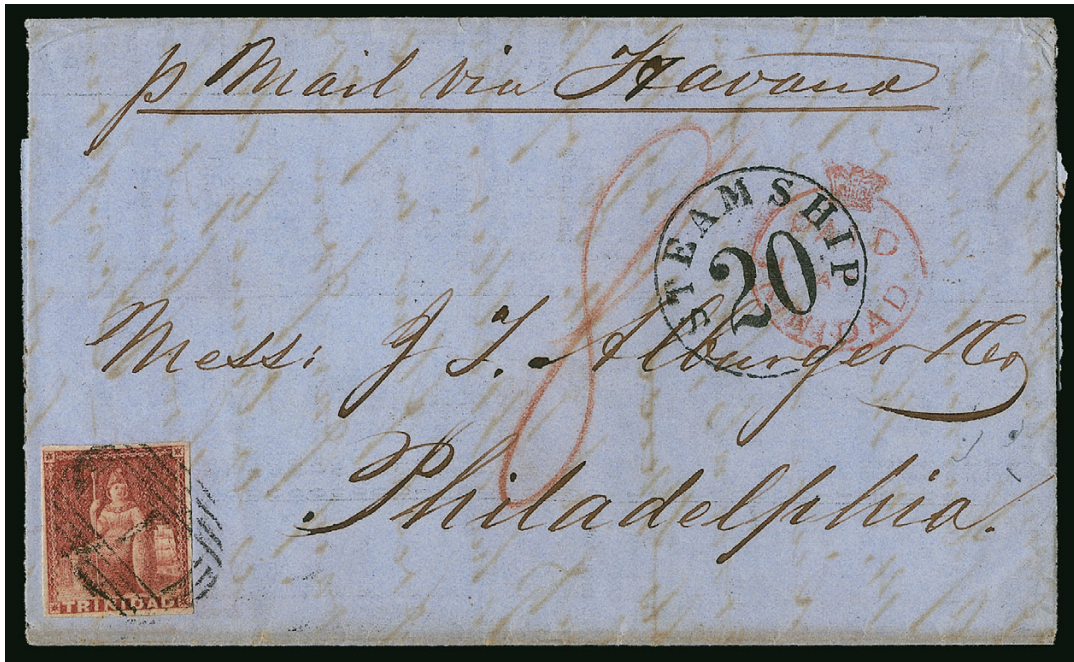 p Mail via Havana
8
STEAMSHIP
20
PAID
TRINIDAD
Messs: J. T. Alburger & Co
Philadelphia.
TRINIDAD